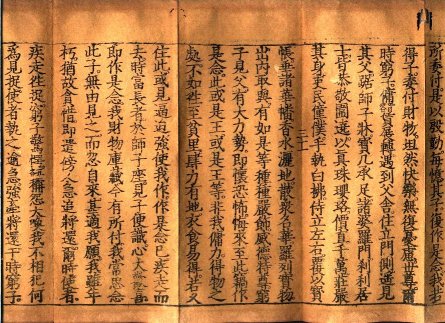 所委付是以慇懃每憶其子復作是念我若
得子委付財物坦然快樂無復憂慮世尊爾
時窮子傭賃展轉遇到父舍住立門側遙見
其父踞師子牀寶几承足諸婆羅門剎利居
士皆恭敬圍遶以真珠瓔珞價直千萬莊嚴
其身吏民僮僕手執白拂侍立左右覆以寶
帳垂諸華幡香水灑地散衆名華羅列寶物
出內取與有如是等種種嚴飾威德特尊窮
子見父有大力勢即懷恐怖悔來至此竊作
是念此或是王或是王等非我傭力得物之
處不如往至貧里肆力有地衣食易得若久
住此或見逼迫強使我作作是念已疾走而
去時富長者於師子座見子便識心大歡喜
即作是念我財物庫藏今有所付我常思念
此子無由見之而忽自來甚適我願我雖年
朽猶故貪惜即遣傍人急追將還爾時使者
疾走往捉窮子驚愕稱怨大喚我不相犯何
爲見捉使者執之逾急強牽將還于時窮子